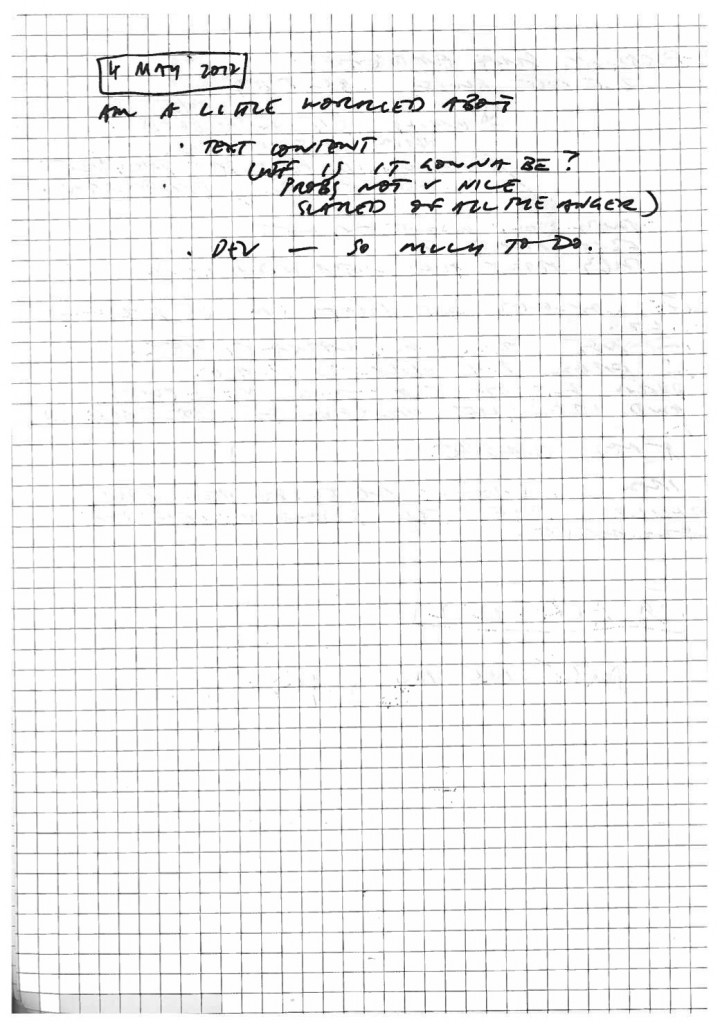 4 MAY 2012
AM A LITTLE WORRIED ABOT
· TEXT CONTENT
(WTF IS IT GONNA BE?
PROBS NOT V NICE
SCARED OF ALL THE ANGER)
· DEV — SO MUCH TO DO.